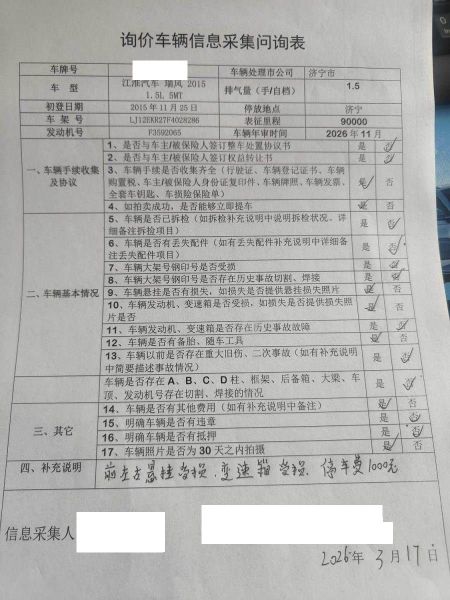 询价车辆信息采集问询表
车牌号 车辆处理市公司 济宁市
车 型 江淮汽车 瑞风 2015 1.5L 5MT 排气量（手/自档） 1.5
初登日期 2015年11月25日 停放地点 济宁
车 架 号 LJ12EKR27F4028286 表征里程 90000
发动机号 F3592065 车辆年审时间 2026年11月
一、车辆手续收集及协议
1、是否与车主/被保险人签订整车处置协议书 是 否
2、是否与车主/被保险人签订权益转让书 是 否
3、车辆手续是否收集齐全（行驶证、车辆登记证书、车辆
购置税、车主/被保险人身份证复印件、车辆牌照、车辆发票、
全套车钥匙、车辆损险保险单） 是 否
4、如拍卖成功，是否能够立即提车 是 否
二、车辆基本情况
5、车辆是否已拆检（如拆检补充说明中说明拆检状况、详
细备注拆检项目） 是 否
6、车辆是否有丢失配件（如有丢失配件补充说明中详细备
注丢失配件项目） 是 否
7、车辆大架号钢印号是否受损 是 否
8、车辆大架号钢印号是否存在历史事故切割、焊接 是 否
9、车辆悬挂是否有损失，如损失是否提供悬挂损失照片 是 否
10、车辆发动机、变速箱是否受损，如损失是否提供损失照
片是否 是 否
11、车辆发动机、变速箱是否存在历史事故故障 是 否
12、车辆是否有备胎、随车工具 是 否
13、车辆以前是否存在重大旧伤、二次事故（如有补充说明
中简要描述事故情况） 是 否
车辆是否存在 A、B、C、D 柱、框架、后备箱、大梁、车
顶、发动机号存在切割、焊接的情况 是 否
三、其它
14、车辆是否有其他费用（如有补充说明中备注） 是 否
15、明确车辆是否有违章 是 否
16、明确车辆是否有抵押 是 否
17、车辆照片是否为 30 天之内拍摄 是 否
四、补充说明 前左右悬挂受损、变速箱受损、停车费1000元
信息采集人
2026年 3月17日